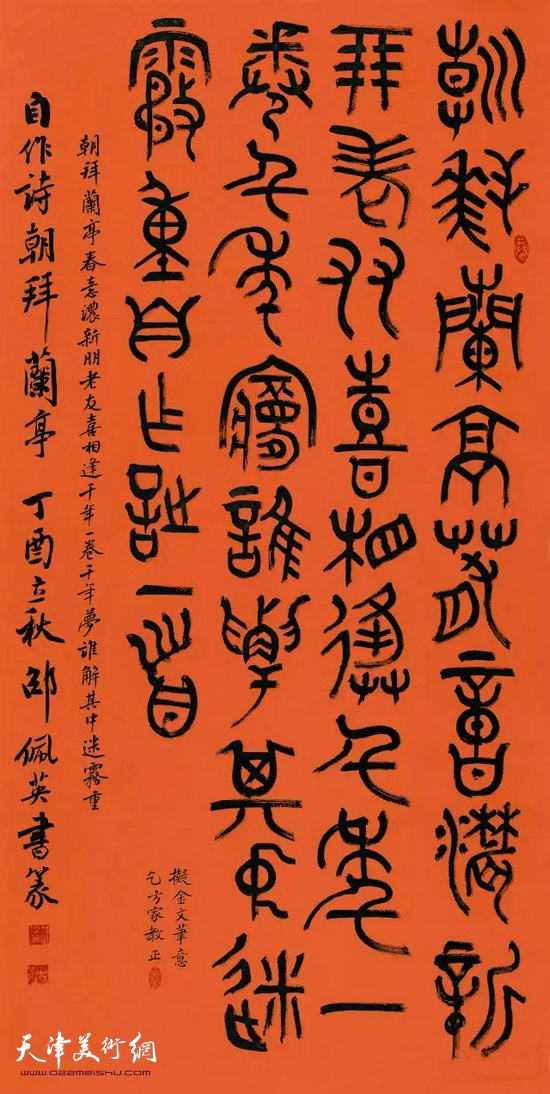 朝拜蘭亭春意濃新
朋老友喜相逢千年一
卷千年夢誰解其中迷
霧重自作詩一首
擬金文筆意
乞方家教正
朝拜蘭亭春意濃新朋老友喜相逢千年一卷千年夢誰解其中迷霧重
自作詩朝拜蘭亭 丁酉立秋 邵佩英書篆
天津美術網
www.022meishu.com